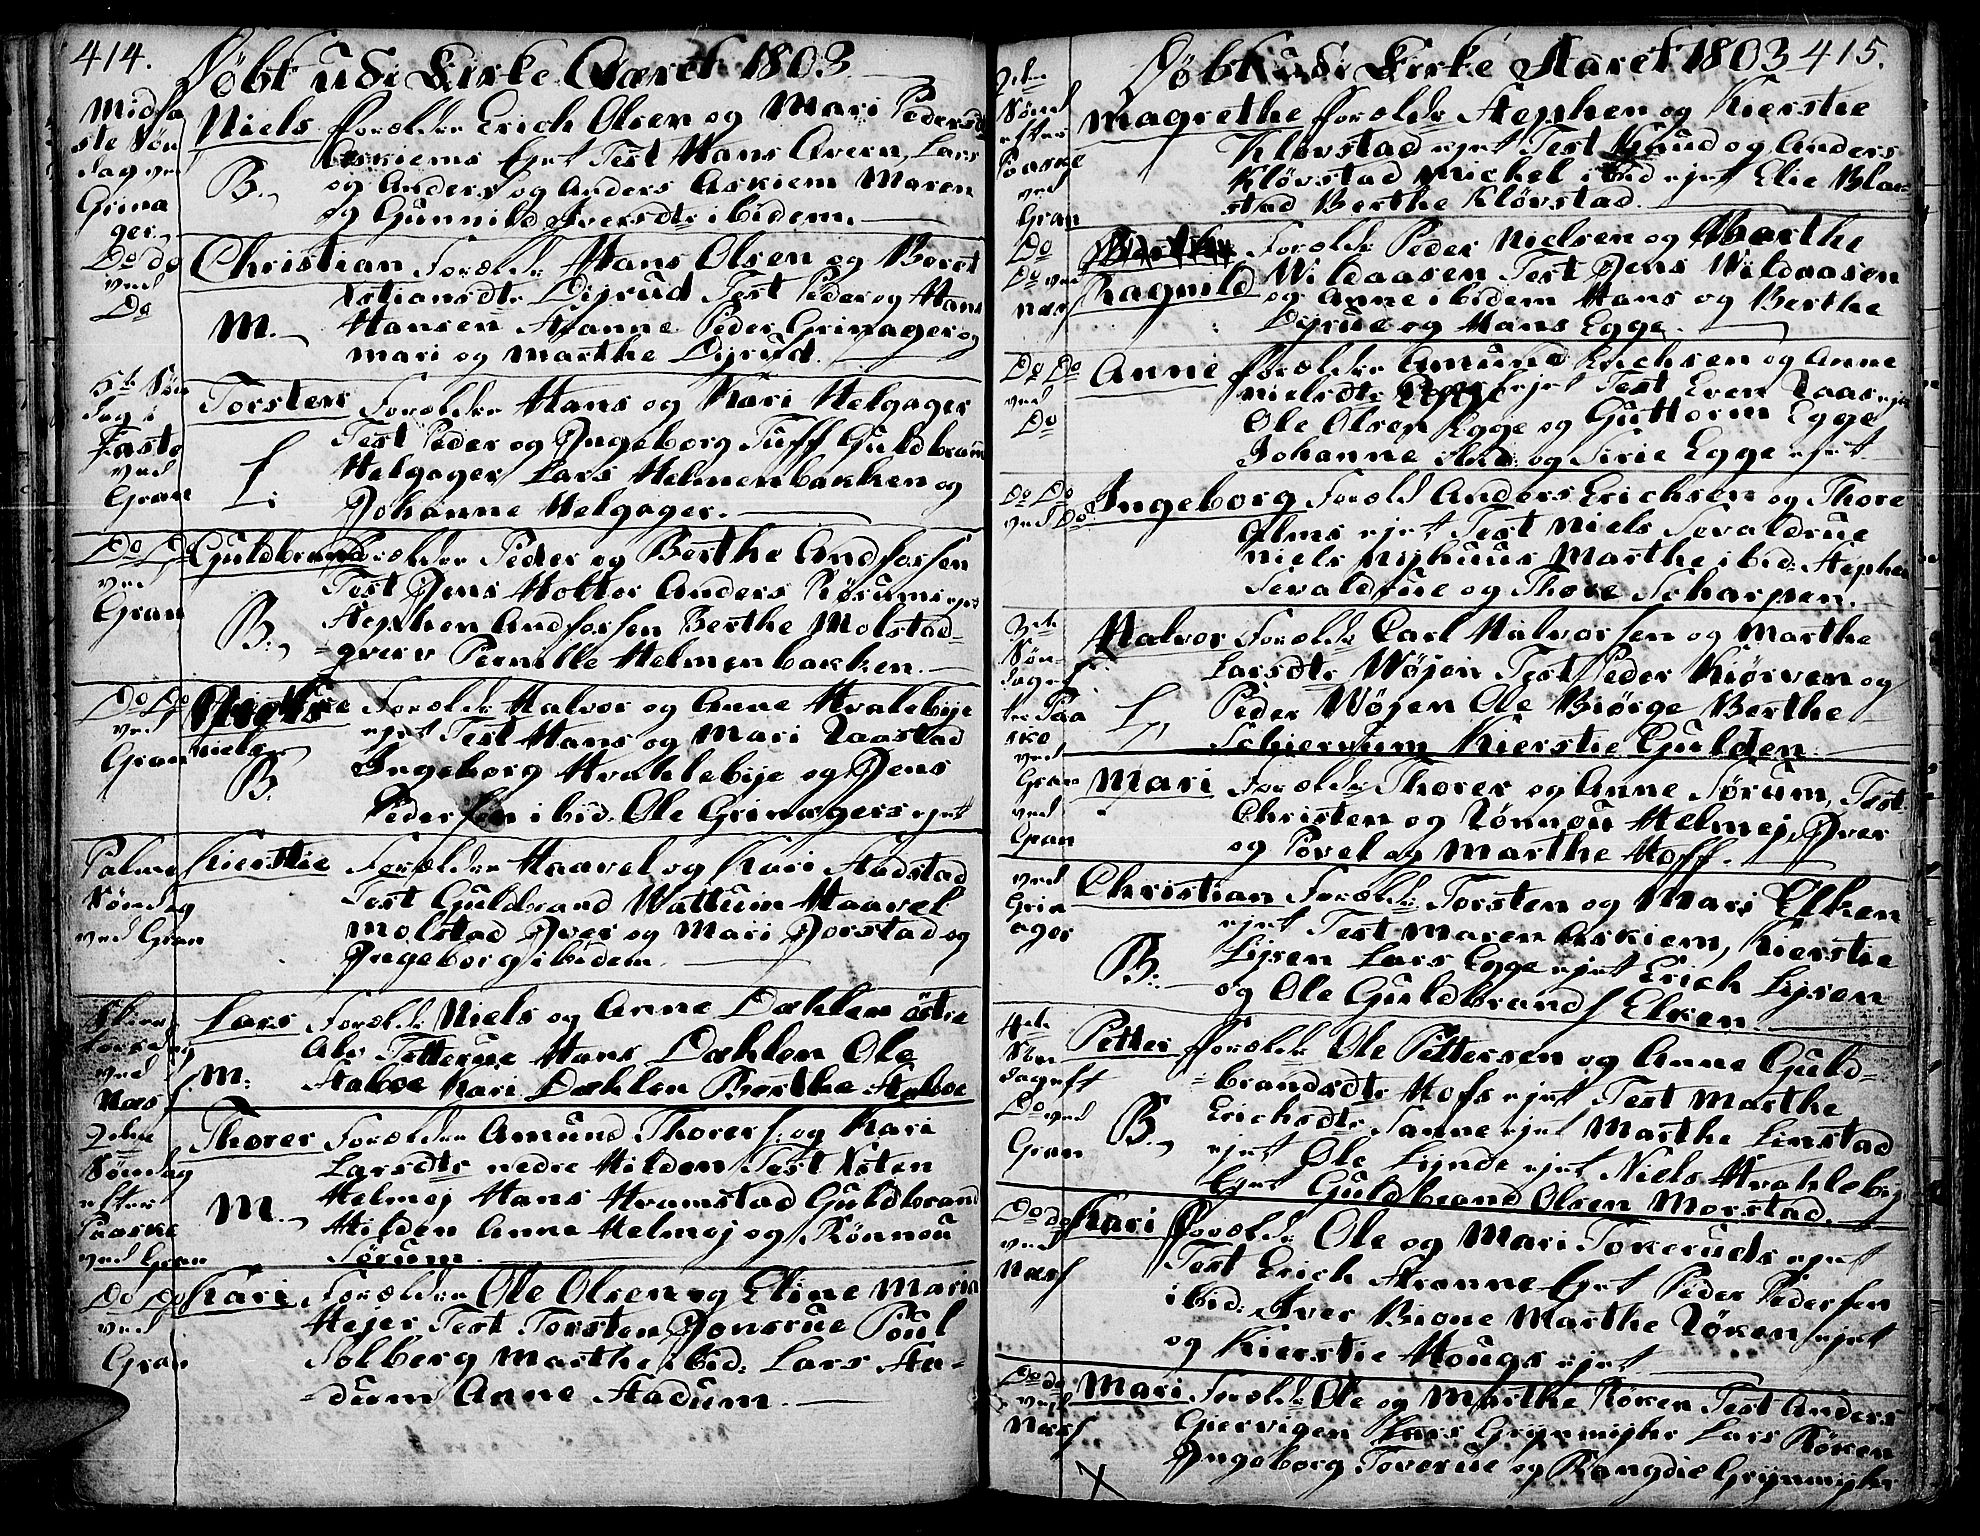 414.
Døbt udi Kirke Aaret 1803
Midfa
ste Søn
dag ved
Grina
ger
Niels Forældre Erich Olsen og Mari Pedersdt
Askiems Ejet Test Hans Avern, Lars
B. og Anders og Anders Askiem Maren
og Gunnild Iversdtr ibidem.
Do do
ved
Do
Christian Forældr Hans Olsen og Beret
Xstiansdtr Dijrud Test Peder og Hans
M. Hansen Aanne Peder Grinager og
Mari og Marthe Dijrud.
5te Søn
dag i
Faste
ved
Gran
Torsten Forældre Hans og Kari Helgager
Test Peder og Ingeborg Tuff Guldbrand
L: Helgager Lars Helmenbakken og
Johanne Helgager.
Do Do
ved
Gran
Guldbrand Forældre Peder og Berthe Andforsen
Test Jens Holter Anders Rosums ejet
B. Stephen Andforsen Berthe Molstad-
qvern Pernille Helmenbakken.
Do Do
ved
Gran
Niels Forældr Halvor og Anne Hvalebije
ejet Test Hans og Mari Raastad
B. Ingeborg Hvahlebije og Jens
Pedersen ibid. Ole Grinagers ejet
Palme
Søndag
ved Gran
Kierstie Forældre Haavel og Kari Stadstad
Test Guldbrand Wattum Haavel
Molstad Iver og Mari Jorstad og
Ingeborg ibidem
Skier
torsdag
ved
Næss
Lars Forældr Niels og Anne Dæhlen östre
Als Tetterue Hans Dæhlen Ole
M: Staboe Kari Dæhlen Berthe Staboe
2den
Søndag
efter
Paaske
ved Gran
Thorer Forældre Amund Thorers. og Kari
Larsdtr nedre Hilden Test Xsten
M. Helmej Hans Hramstad Guldbrand
Hilden Anne Helmej og Rönnou
Sörum
Do Do
ved
Gran
Kari Forældre Ole Olsen og Eline Maria
Hejer Test Torsten Jonsrue Poul
Solberg Marthe ibid: Lars Sta-
dum Anne Stadum.
Døbt udi Kirke Aaret 1803 415.
2den
Sønd
efter
Paaske
ved
Gran
Magrethe Forældr Stephen og Kierstie
Kløvstad ejet Test Knud og Anders
Kløvstad Michel ibid ejet Elie Blæ-
stad Berthe Kløvstad.
Do
Do ved
Næss
Ragnild Forældr Peder Nielsen og Marthe
Wildaasen Test Jens Wildaasen
og Anne ibidem Hans og Berthe
Dijrue og Hans Egge.
Do Do
ved
Do
Anne Forældre Amund Erichsen og Anne
Nielsdtr Egge ejet Test Even Raas ejet
Ole Olsen Egge og Guttorm Egge
Johanne ibid: og Sirie Egge ejet
Do Do
ved Do
Ingeborg Foræld Anders Erichsen og Thore
Alms ejet Test Niels Sevaldrue
Niels Nijhuus Marthe ibid: Stephen
Sevaldrue og Thore Scharpen.
3die
Søn-
dag ef
ter Paa
ske
ved
Gran
Halvor Forældr Carl Halvorsen og Marthe
Larsdtr Wøjen Test Peder Kiørven og
L. Peder Wøjen Ole Biørge Berthe
Schierum Kierstie Gulden.
ved
Gran
Mari Forældre Thorer og Anne Sørum, Test
Christen og Rönnou Helmej, Iver
og Povel og Marthe Hoff.
ved
Grin
ager
Christian Forældr Torsten og Mari Elken
ejet Test Maren Askiem, Kierstie
B. Lijsen Lars Egge ejet Erich Lijsen
og Ole Guldbrands Elken.
4de
Søn
dag eft
Do ved
Gran
Petter Forældr Ole Pettersen og Anne Guld-
brandsdtr Hofs ejet Test Marthe
B. Erichsdtr Sanne ejet Marthe Linstad
ejet Ole Lijnde ejet Niels Hvahlebij
Ejet Guldbrand Olsen Morstad.
Do do
ved
Næss
Kari Forældr Ole og Mari Tokeruds ejet
Test Erich Strønne Ejet Peder Pedersen
ibid: Iver Bione Marthe Røken ejet
og Kierstie Hougs ejet
Do do
ved
Næss
Mari Forældr Ole og Marthe Røken Test Anders
Giervigen Lars Grijnmijhr Lars Røken
Ingeborg Toverue og Rangdie Grijnmijhr
X